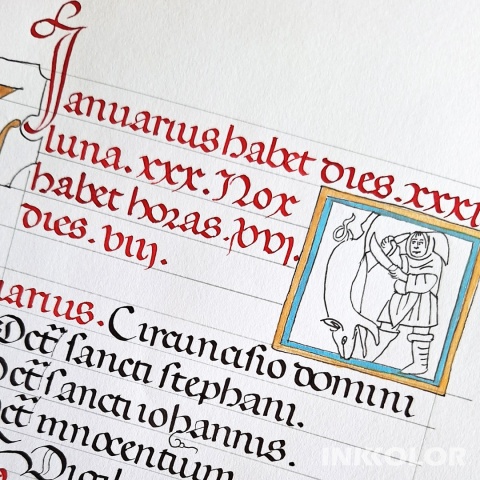 Januarius habet dies. xxxi
luna. xxx. Nox
habet horas. xvi.
dies. viij.
uarius. Circuncisio domini
Oct̄ sancti stephani.
Oct̄ sancti iohannis.
Oct̄ innocentium
INKKOLOR